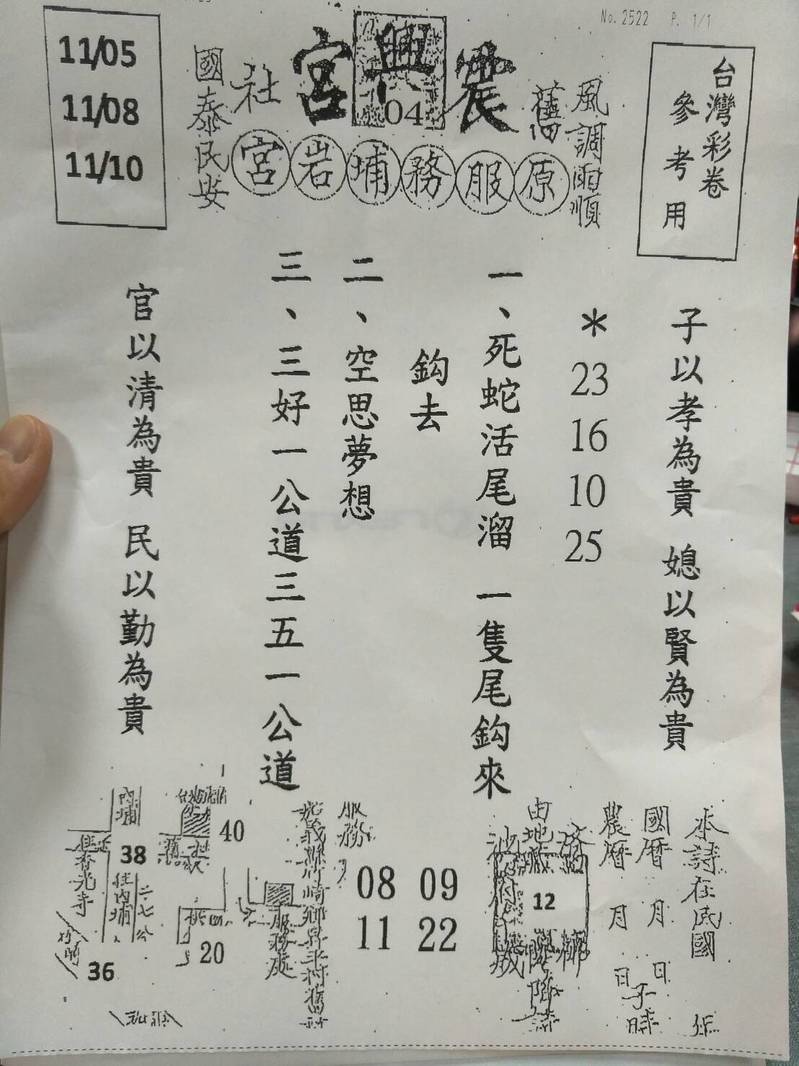 No. 2522 P. 1/1
台灣彩卷
參考用
風調雨順
舊
震興宮
04
社
原服務埔岩宮
國泰民安
11/05
11/08
11/10
子以孝為貴 媳以賢為貴
＊23 16 10 25
一、死蛇活尾溜 一隻尾鈎來
鈎去
二、空思夢想
三、三好一公道三五一公道
官以清為貴 民以勤為貴
本詩在民國 年
國曆 月 日子時
農曆 月 日
由地
12
服務
08 09
11 22
服務處
40
20
內埔
38
往內埔
二七公
往香光寺
36